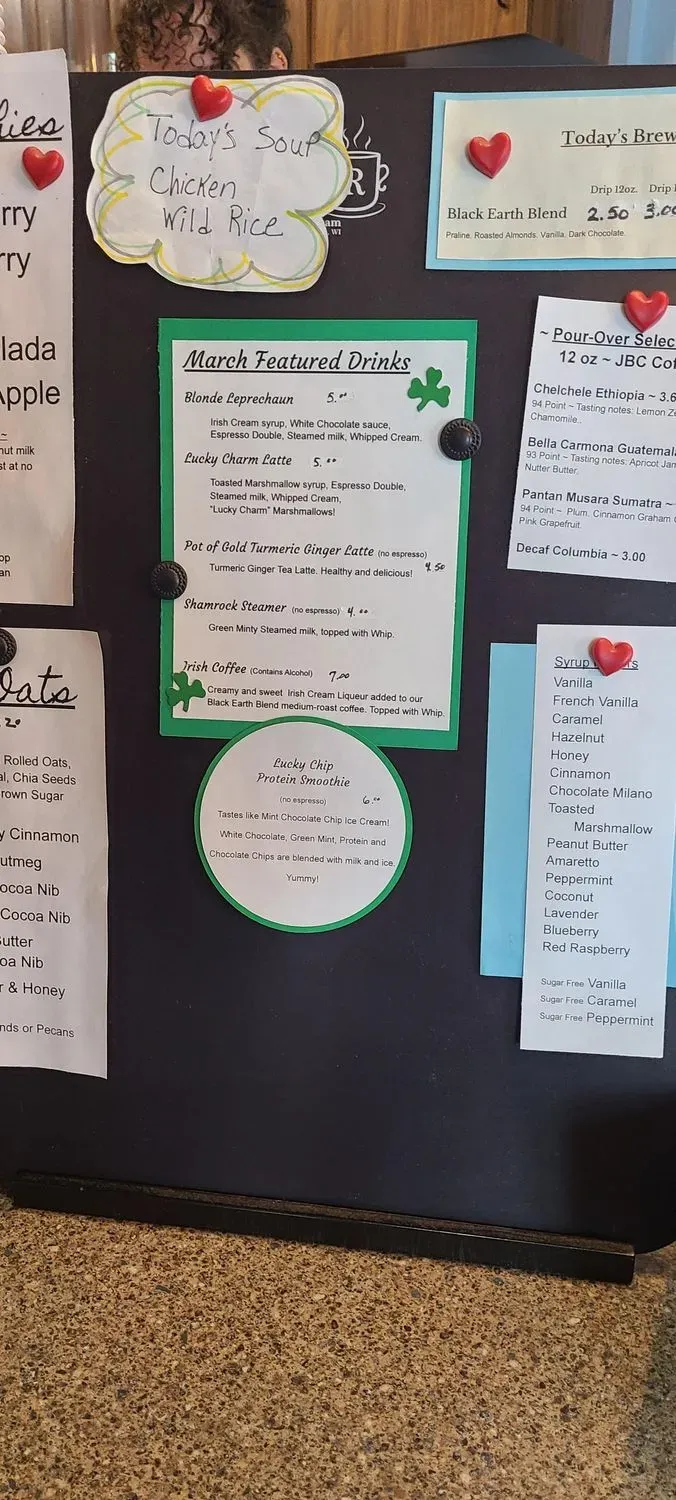 ies
rry
rry
lada
Apple
nut milk
st at no
op
an
Today's Soup
Chicken
Wild Rice
R
am
WI
Today's Brew
Drip 12oz. Drip
Black Earth Blend 2.50 3.00
Praline, Roasted Almonds, Vanilla, Dark Chocolate.
March Featured Drinks
Blonde Leprechaun 5.00
Irish Cream syrup, White Chocolate sauce,
Espresso Double, Steamed milk, Whipped Cream.
Lucky Charm Latte 5.00
Toasted Marshmallow syrup, Espresso Double,
Steamed milk, Whipped Cream,
"Lucky Charm" Marshmallows!
Pot of Gold Turmeric Ginger Latte (no espresso)
Turmeric Ginger Tea Latte. Healthy and delicious! 4.50
Shamrock Steamer (no espresso) 4.00
Green Minty Steamed milk, topped with Whip.
Irish Coffee (Contains Alcohol) 7.00
Creamy and sweet Irish Cream Liqueur added to our
Black Earth Blend medium-roast coffee. Topped with Whip.
Lucky Chip
Protein Smoothie
(no espresso) 6.00
Tastes like Mint Chocolate Chip Ice Cream!
White Chocolate, Green Mint, Protein and
Chocolate Chips are blended with milk and ice.
Yummy!
~ Pour-Over Selec
12 oz ~ JBC Cof
Chelchele Ethiopia ~ 3.6
94 Point ~ Tasting notes: Lemon Ze
Chamomile..
Bella Carmona Guatemala
93 Point ~ Tasting notes: Apricot Jam
Nutter Butter.
Pantan Musara Sumatra ~
94 Point ~ Plum. Cinnamon Graham
Pink Grapefruit.
Decaf Columbia ~ 3.00
Oats
.20
Rolled Oats,
al, Chia Seeds
rown Sugar
y Cinnamon
utmeg
ocoa Nib
Cocoa Nib
utter
oa Nib
r & Honey
nds or Pecans
Syrup
Vanilla
French Vanilla
Caramel
Hazelnut
Honey
Cinnamon
Chocolate Milano
Toasted
Marshmallow
Peanut Butter
Amaretto
Peppermint
Coconut
Lavender
Blueberry
Red Raspberry
Sugar Free Vanilla
Sugar Free Caramel
Sugar Free Peppermint